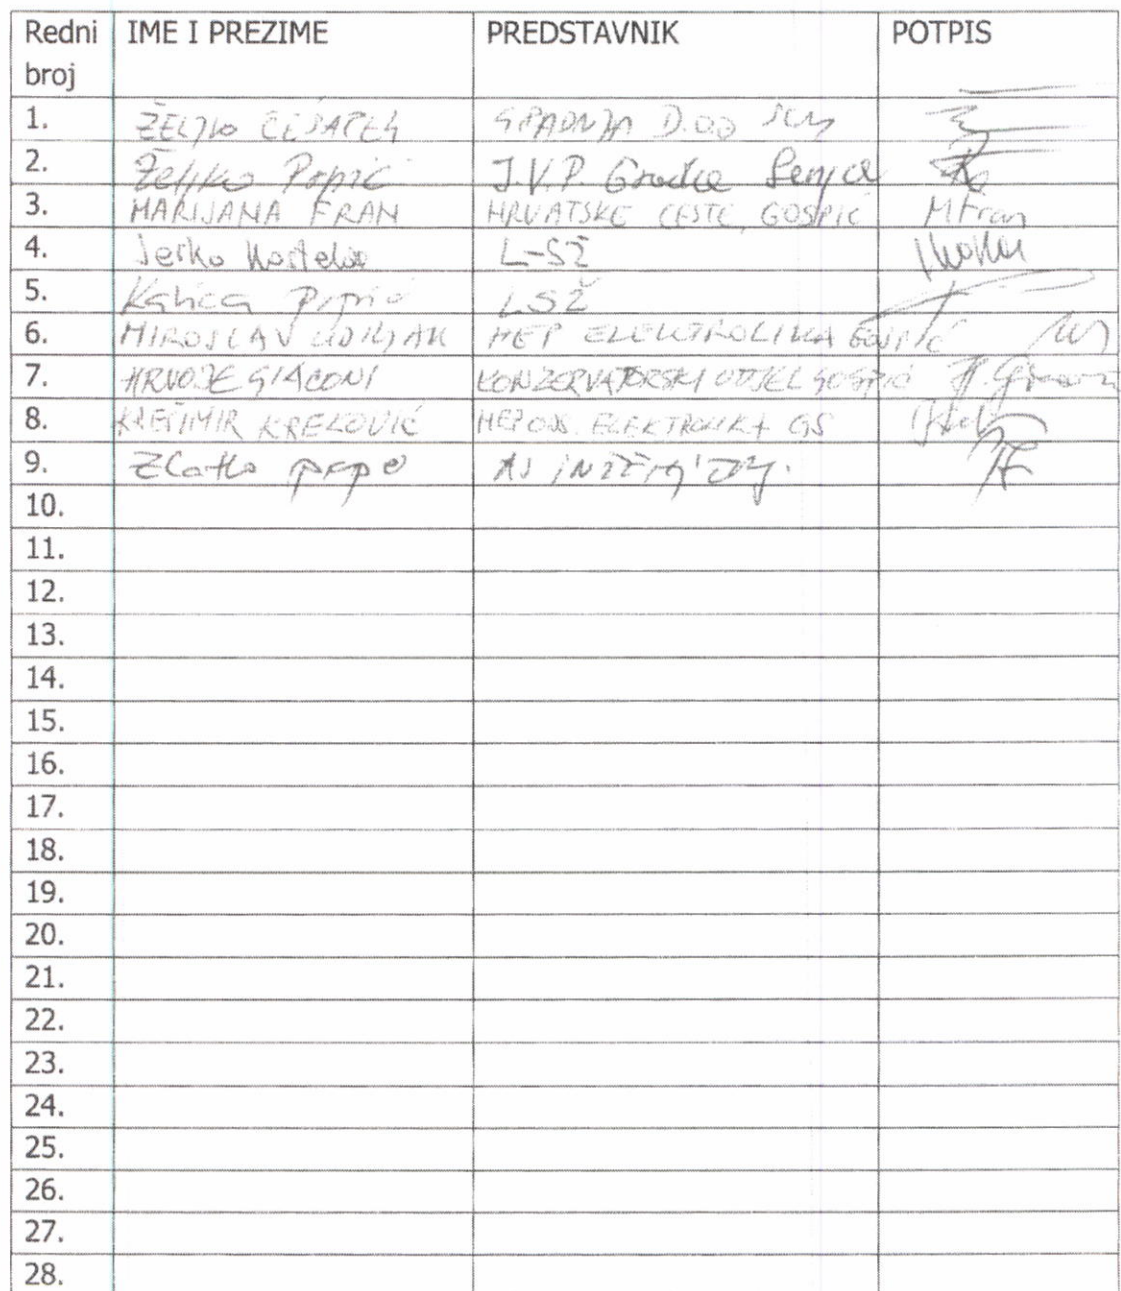 Redni broj IME I PREZIME PREDSTAVNIK POTPIS
1. ŽELJKO GRADNJA D.O.O
2. Željko Prpić J.V.P. Grada Senja
3. MARIJANA FRAN HRVATSKE CESTE, GOSPIĆ MFran
4. Jerko Kostelac L-SŽ
5. Katica Prpić LSŽ
6. MIROSLAV HEP ELEKTROLIKA GOSPIĆ
7. HRVOJE GIACONI KONZERVATORSKI ODJEL GOSPIĆ H. Giaconi
8. KREŠIMIR KREKOVIĆ HEP ODS. ELEKTROLIKA GS
9. Zlatko
10.
11.
12.
13.
14.
15.
16.
17.
18.
19.
20.
21.
22.
23.
24.
25.
26.
27.
28.